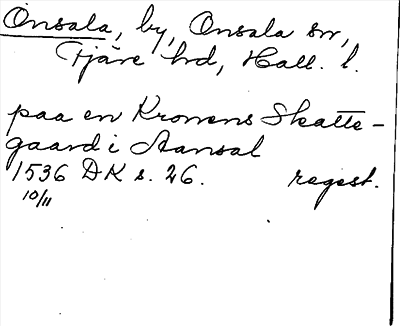 Onsala, by, Onsala sn,
Fjäre hd, Hall. l.
paa en Kronens Skatte-
gaard i Aansal
1536 DK s. 26. regest.
10/11